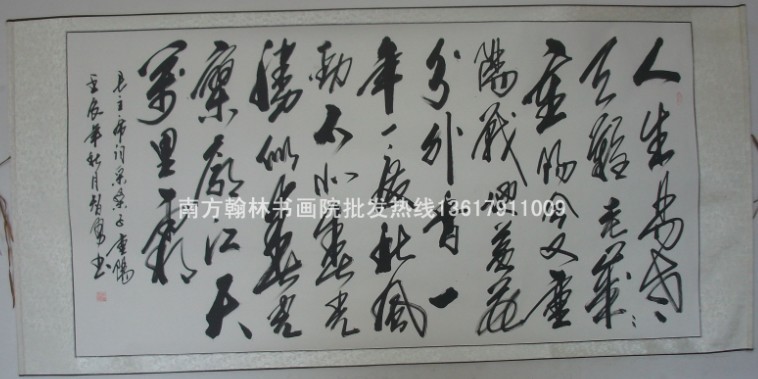 人生易老
天難老歲々
重陽今又重
陽戰地黄花
分外香一
年一度秋風
勁不似春光
勝似春光
寥廓江天
萬里霜
毛主席詞采桑子重陽
壬辰年秋月智勇书
南方翰林书画院批发热线13617911009